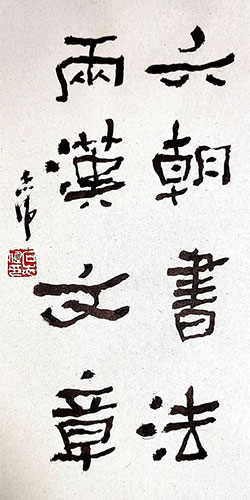 六朝書法
兩漢文章